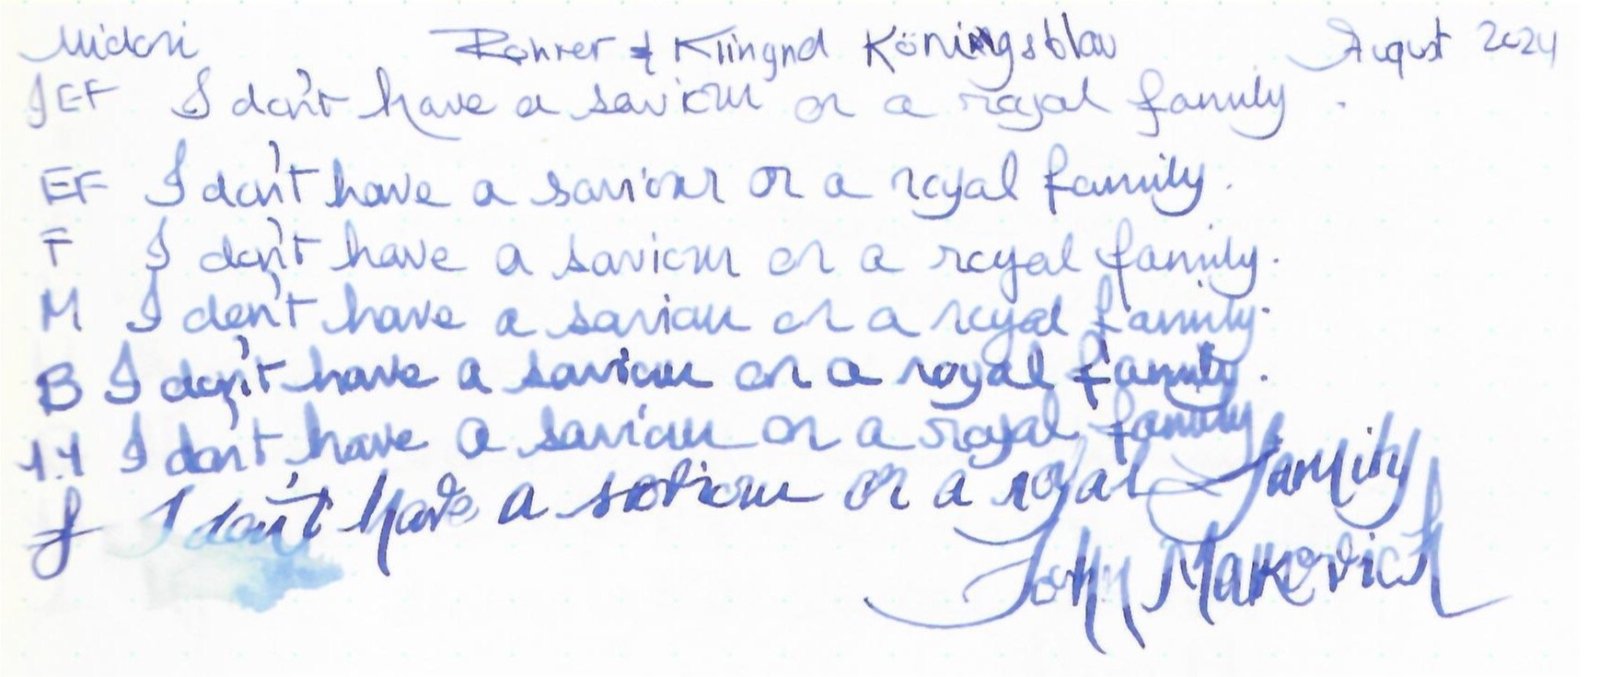 Midori Rohrer & Klingnd Köningsblau August 2024
JEF I don't have a saviour or a royal family.
EF I don't have a saviour or a royal family.
F I don't have a saviour or a royal family.
M I don't have a saviour or a royal family.
B I don't have a saviour or a royal family.
1.1 I don't have a saviour or a royal family
f I don't have a saviour or a royal family
John Malkovich